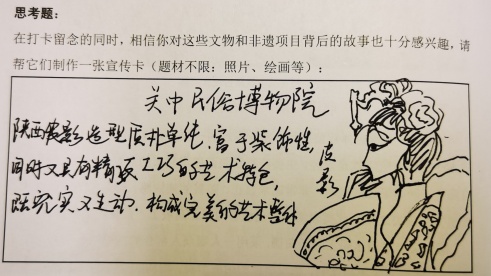 思考题：
在打卡留念的同时，相信你对这些文物和非遗项目背后的故事也十分感兴趣，请
帮它们制作一张宣传卡（题材不限：照片、绘画等）：
关中民俗博物院
陕西皮影造型质朴单纯，富于装饰性，
同时又具有精致工巧的艺术特色，
既充实又生动，构成完美的艺术整体
皮影